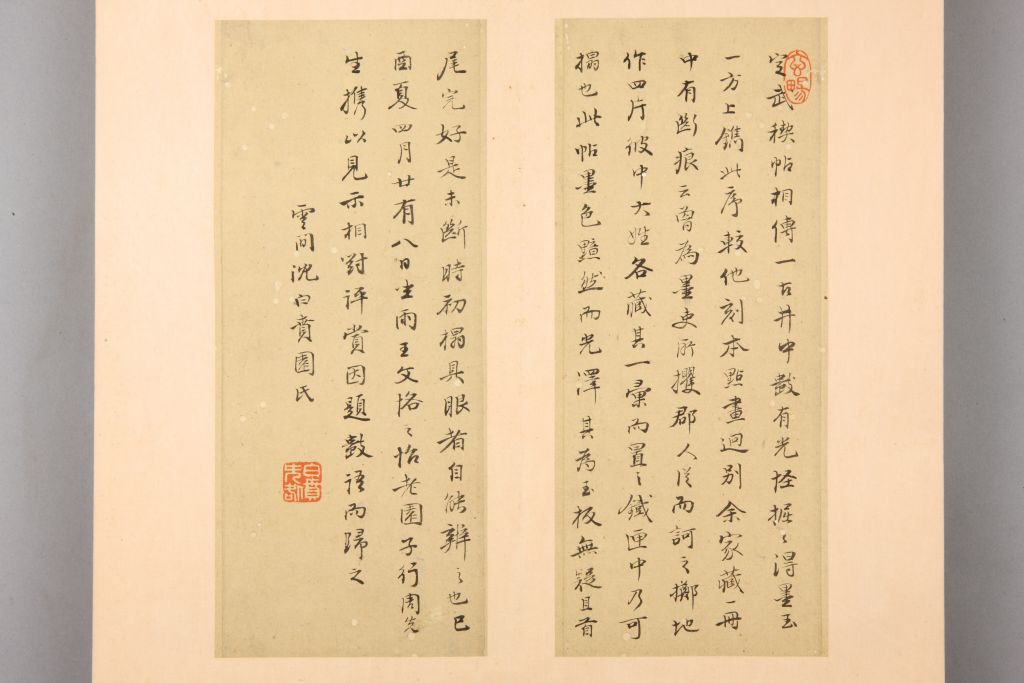 定武稧帖相傳一古井中數有光怪掘之得墨玉
一方上鐫此序較他刻本點畫迥别余家藏一冊
中有斷痕云曾為墨吏所攫郡人從而訶之擲地
作四片彼中大姓各藏其一彙而置之鐵匣中乃可
搨也此帖墨色黯然而光澤其為玉板無疑且首
尾完好是未斷時初搨具眼者自能辨之也巳
酉夏四月廿有八日坐雨王文恪之怡老園子行周先
生携以見示相對評賞因題數語而歸之
雲間沈白賁園氏